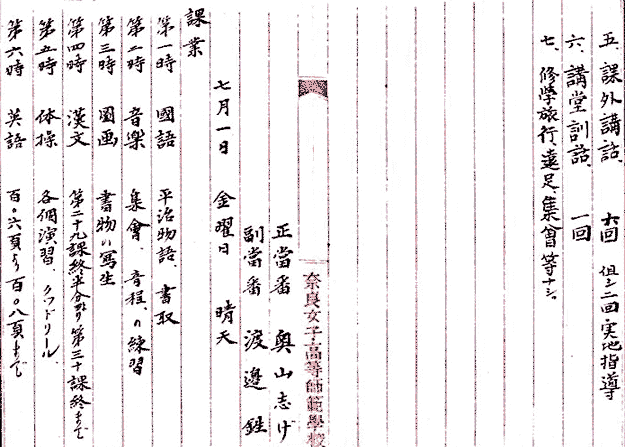 五、課外講話、 六回 但シ二回実地指導
六、講堂訓話、 一回
七、修學旅行、遠足、集會等ナシ。
奈良女子高等師範學校
正當番 奥山志げ
副當番 渡邊
七月一日 金曜日 晴天
課業
第一時 國語 平治物語、書取
第二時 音樂 集會、音程、ノ練習
第三時 圖画 書物ノ寫生
第四時 漢文 第二十九課終半分ヨリ第三十課終まで
第五時 体操 各個演習、クワドリール、
第六時 英語 百〇六頁より百〇八頁まで